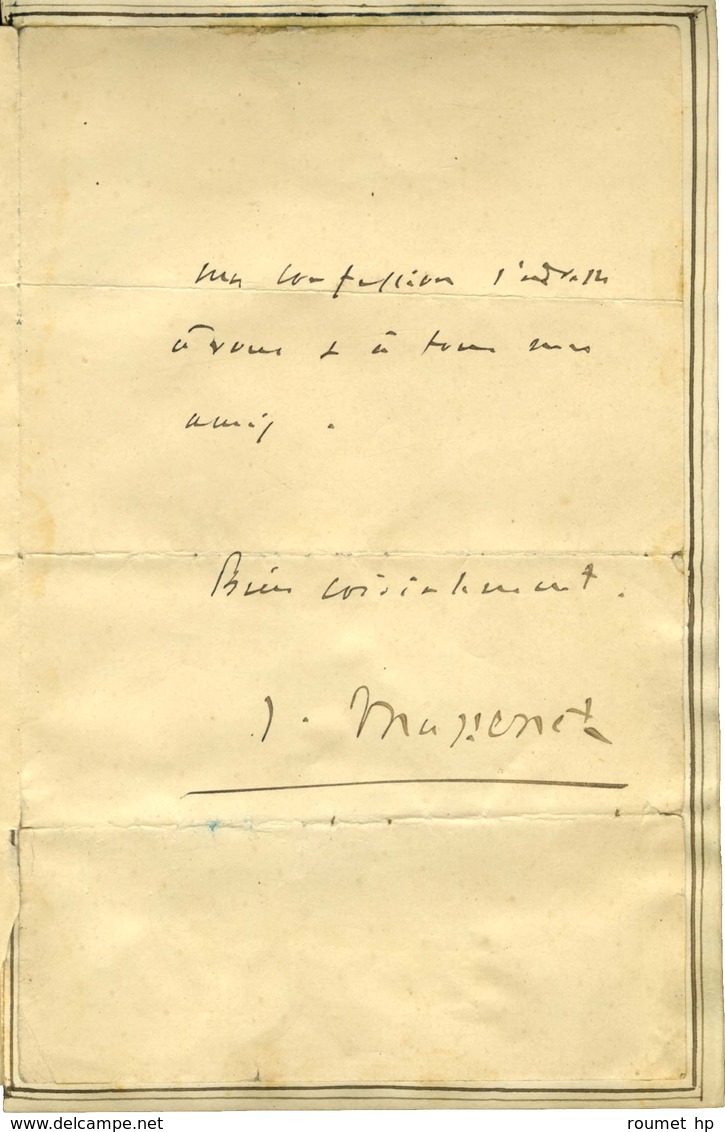 ma confession s'adresse
à vous & à tous mes
amis.
Bien cordialement.
J. Massenet
delcampe.net
roumet hp